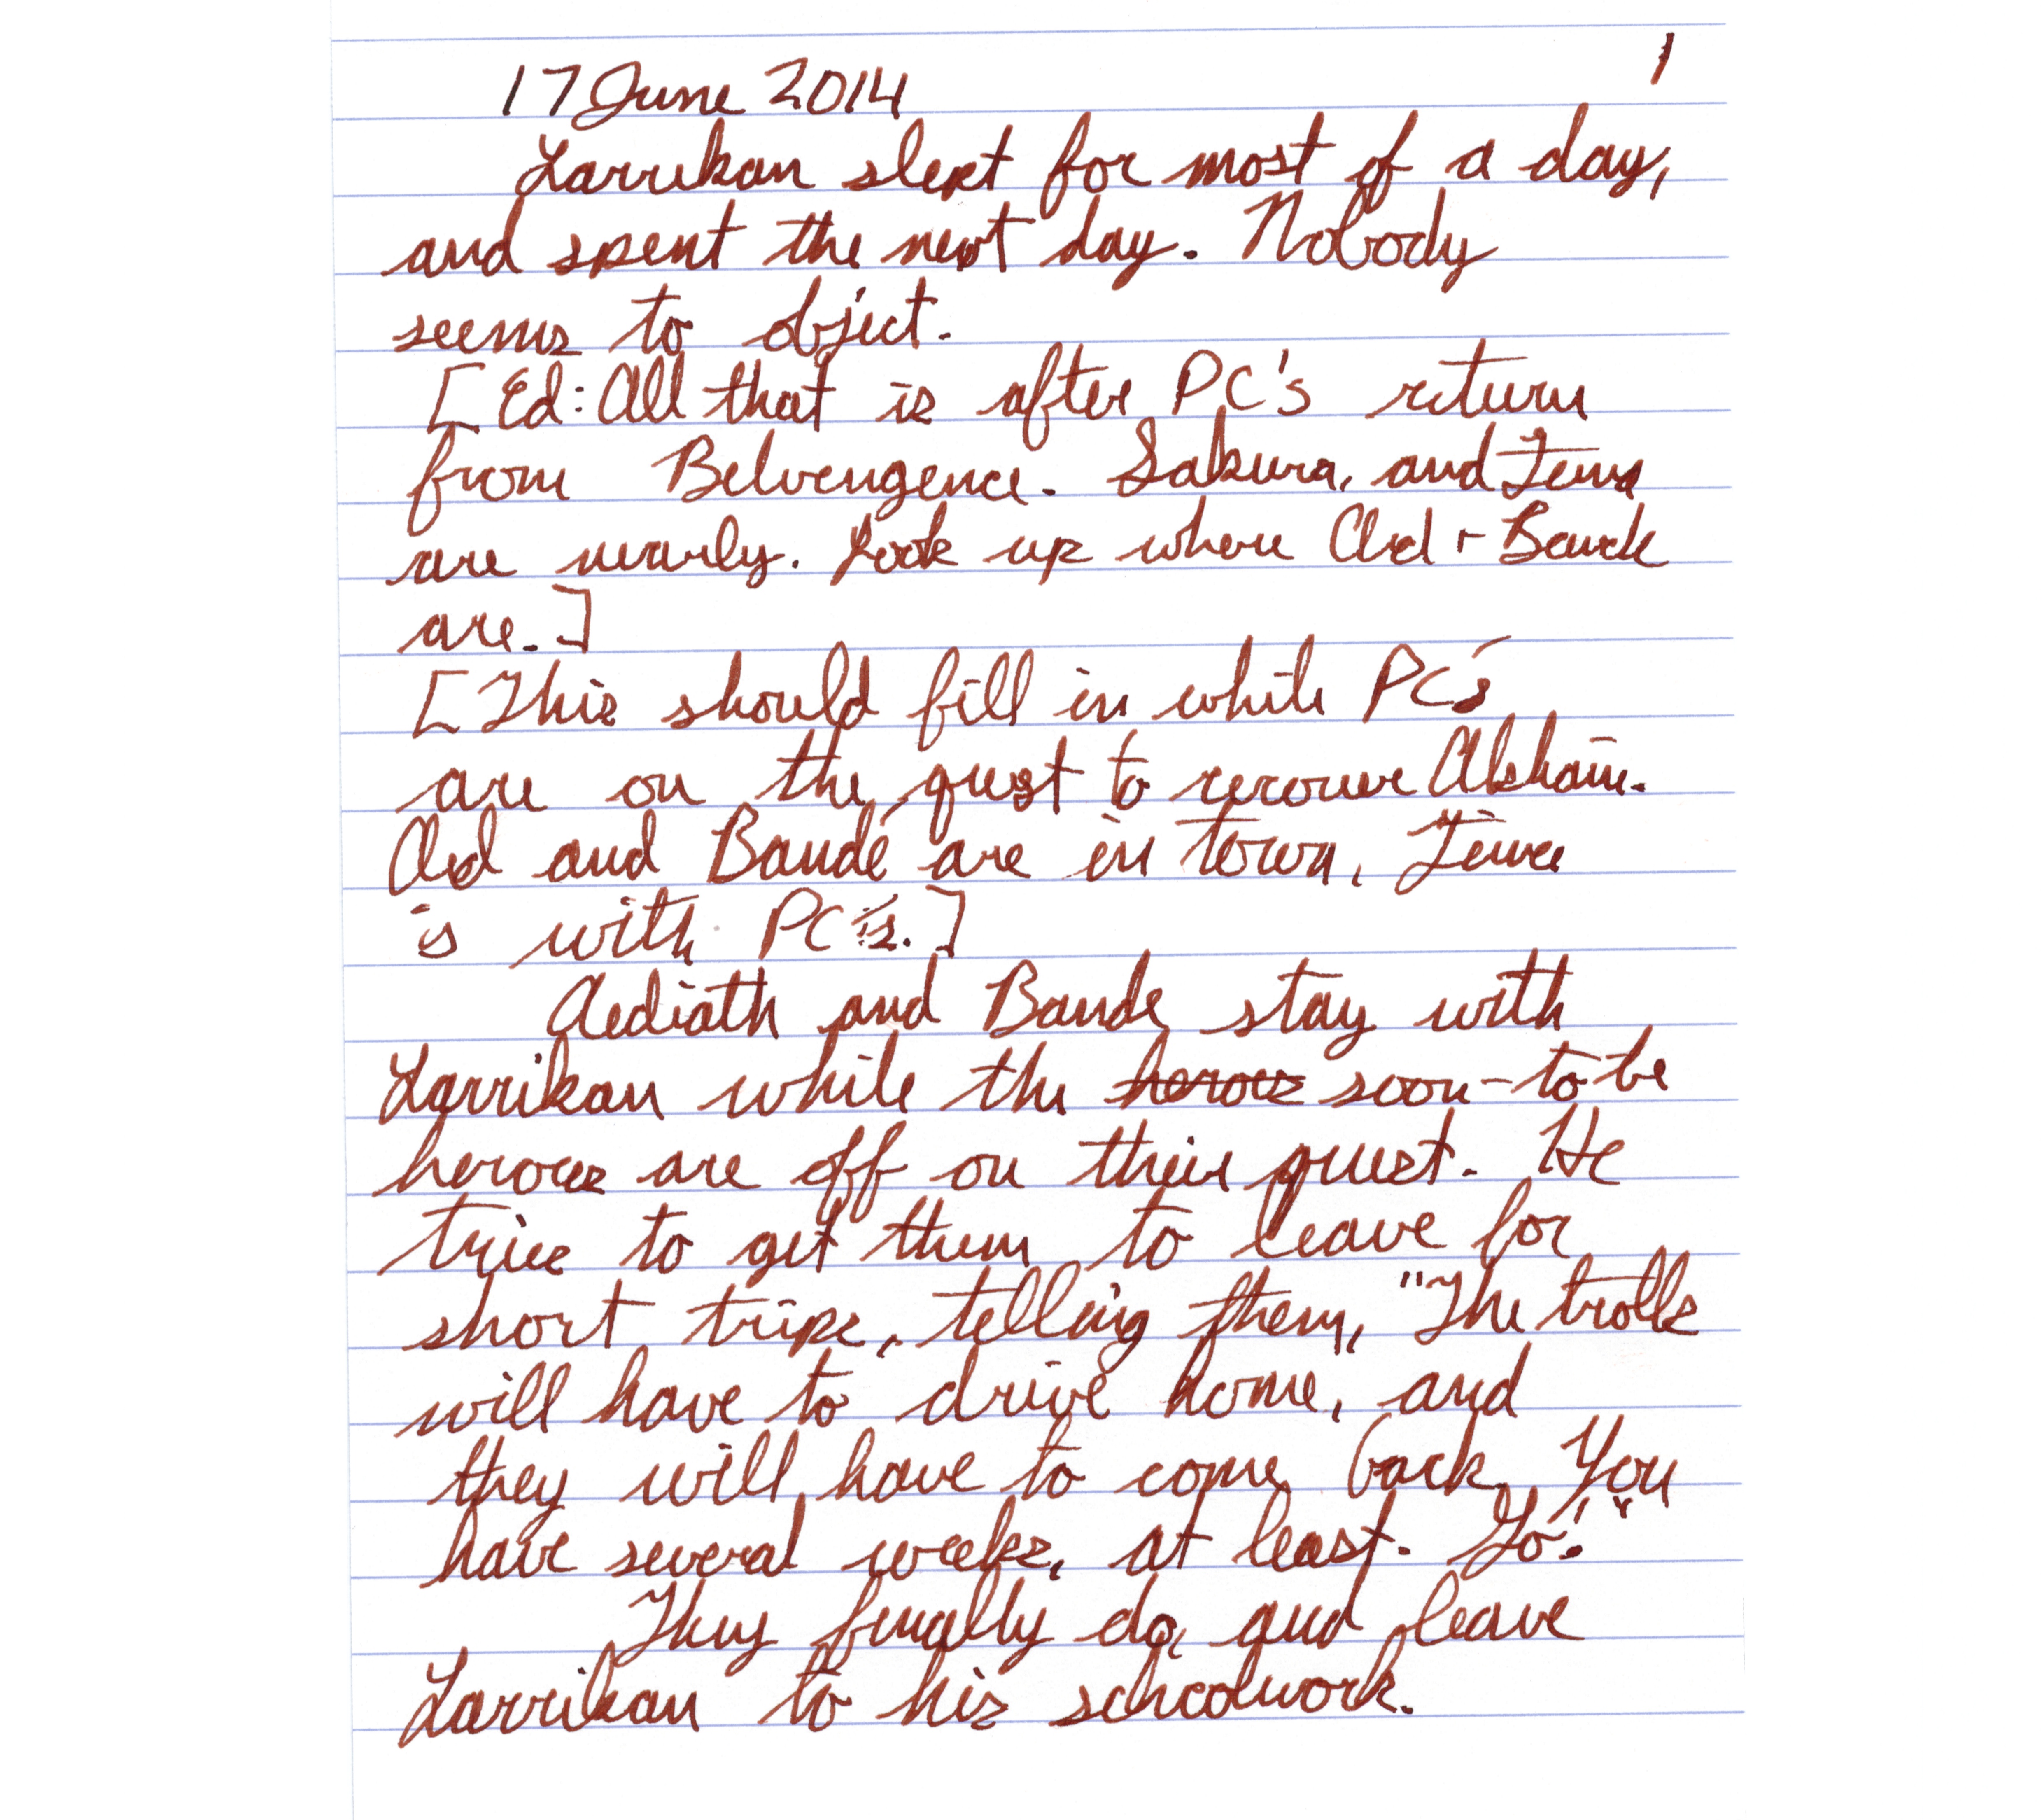 17 June 2014
1
Larrikan slept for most of a day,
and spent the next day. Nobody
seems to object.
[Ed: All that is after PC's return
from Belvengence. Sakura, and
are nearly. Look up where +
are.]
[This should fill in while PC's
are on the quest to recover
and Baudé are in town,
is with PC's.]
Aediath and Baude stay with
Larrikan while the heroes soon-to be
heroes are off on their quest. He
tries to get them to leave for
short trips, telling them, "The trolls
will have to drive home, and
they will have to come back. You
have several weeks, at least. Go!"
They finally do, and leave
Larrikan to his schoolwork.